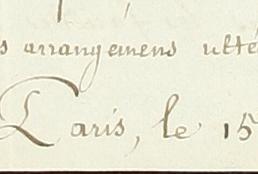 s arrangemens ulté
Paris, le 15